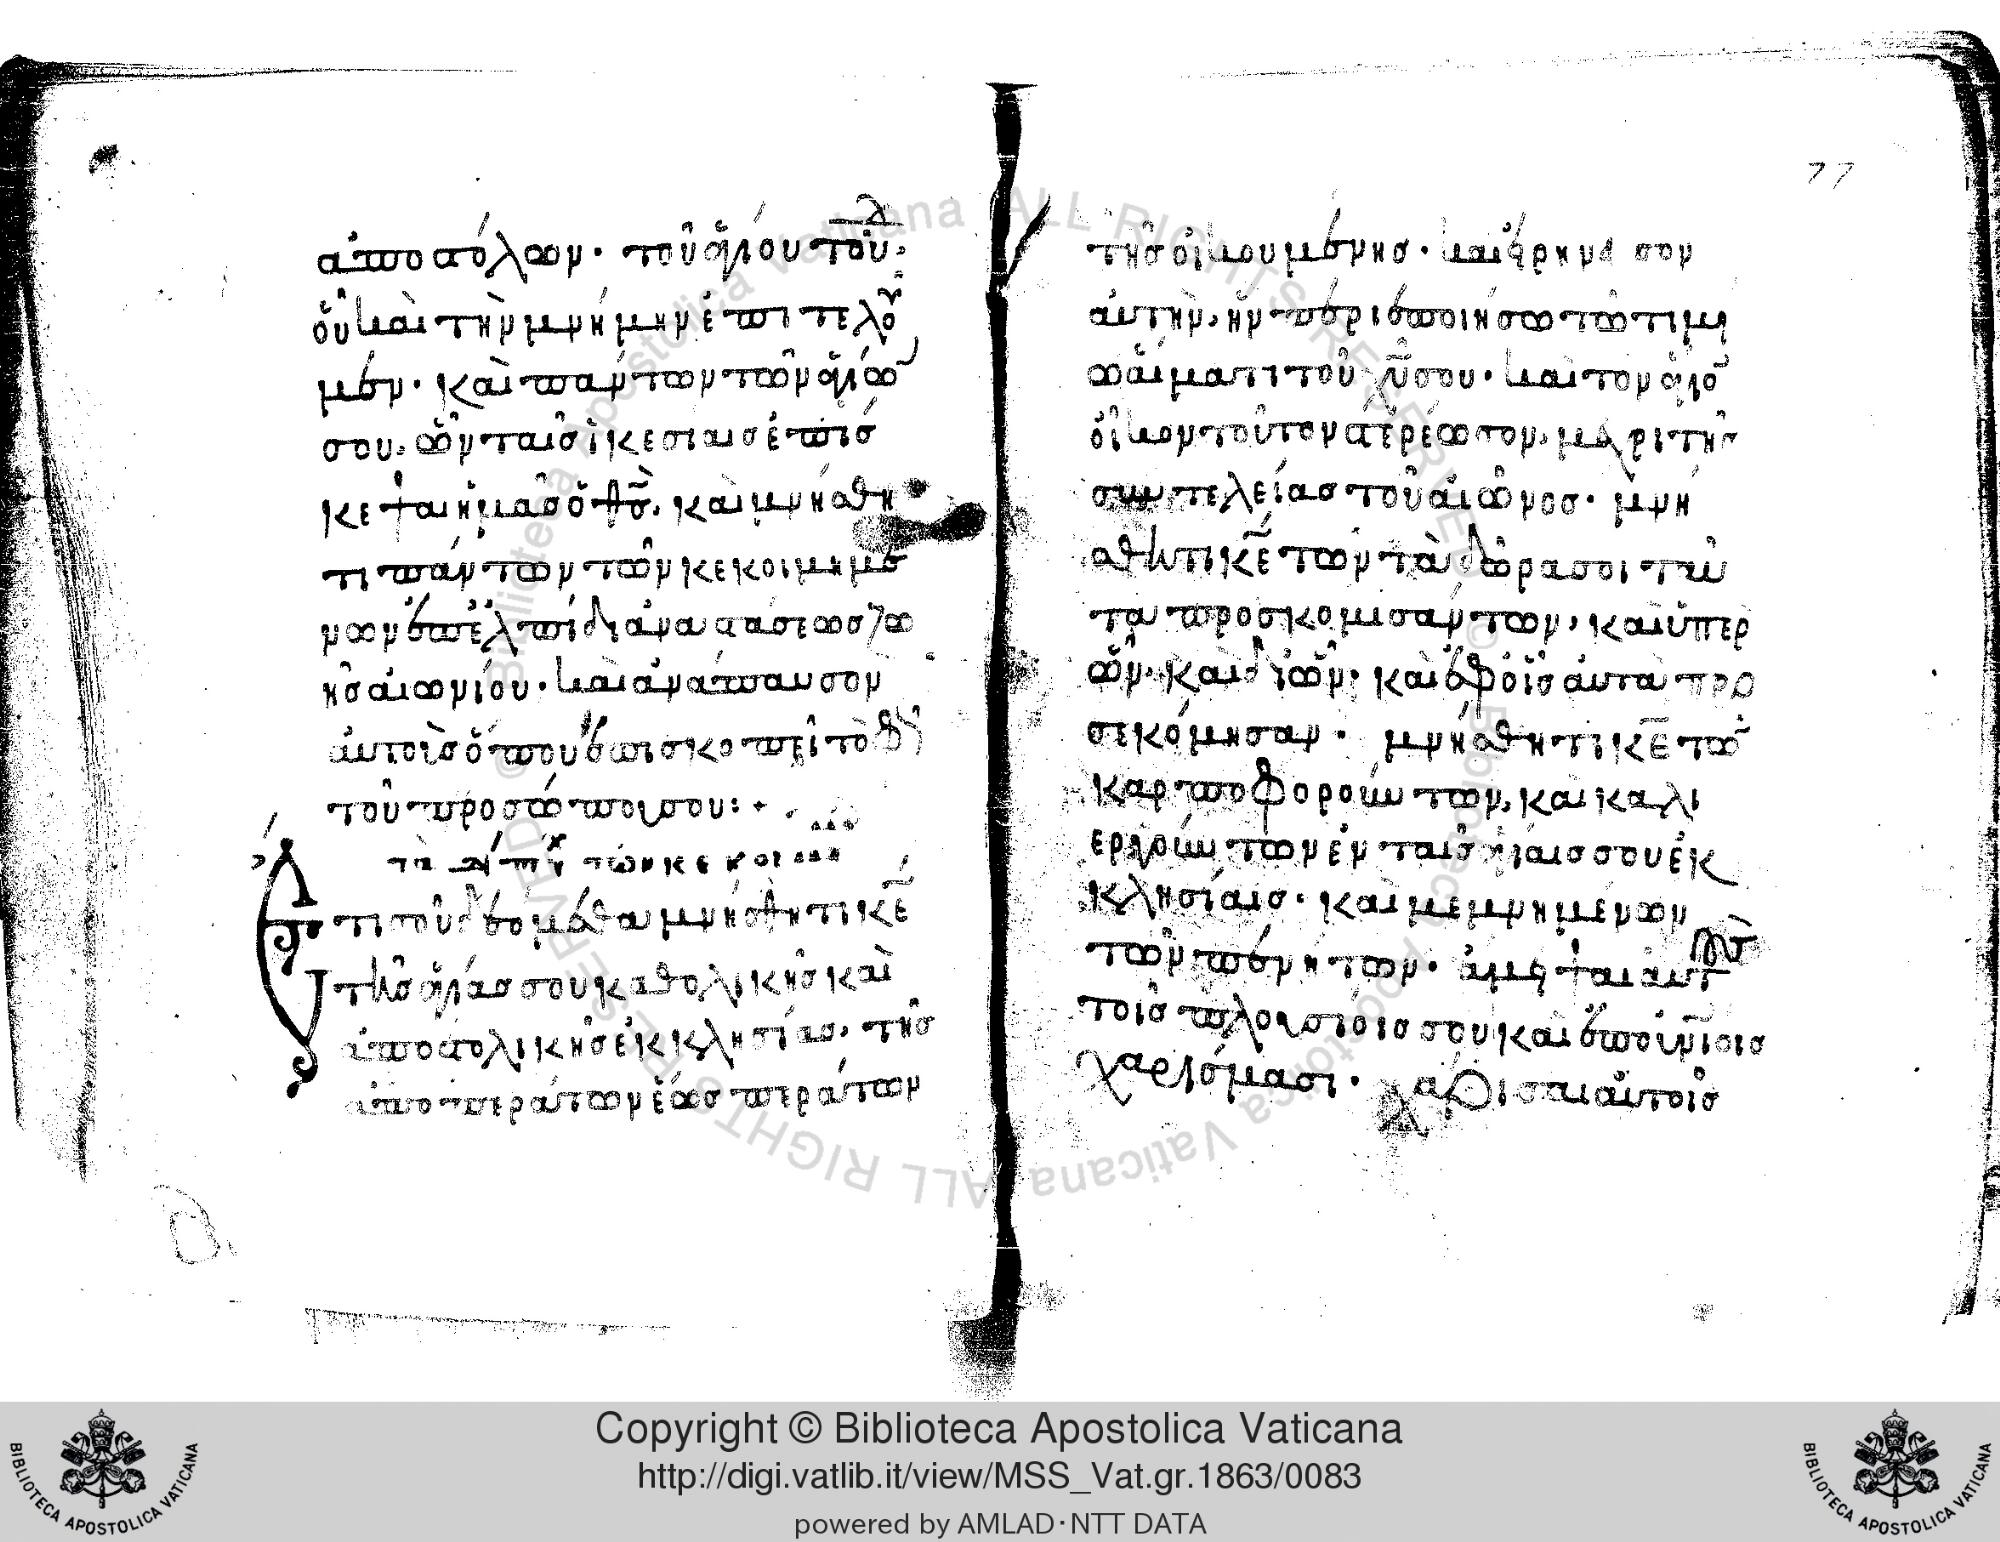 ἀποστόλων· τοῦ ἁγίου τοῦ δ
οὗ καὶ τὴν μνήμην ἐπιτελοῦ
μεν· καὶ πάντων τῶν ἁγίω
σου, ὧν ταῖς ἱκεσίαις ἐπίσ
κεψαι ἡμᾶς ὁ θς̅, καὶ μνήσθη
τι πάντων τῶν κεκοιμημέ
νων ἐπ' ἐλπίδι ἀναστάσεως ζω
ῆς αἰωνίου· καὶ ἀνάπαυσον
αὐτοὺς ὅπου ἐπισκοπεῖ τὸ φῶς
τοῦ προσώπου σου:+
τὰ τῶν κεκοι
Ἔτι σοῦ δεόμεθα μνήσθητι κε̅
τῆς ἁγίας σου καθολικῆς καὶ
ἀποστολικῆς ἐκκλησίας, τῆς
ἀπὸ περάτων ἕως περάτων
77
τῆς οἰκουμένης· καὶ εἰρήνευσον
αὐτὴν, ἣν περιεποιήσω τῶ τιμί
ω αἵματι τοῦ χυ̅ σου· καὶ τὸν ἅγιο
οἶκον τοῦτον στερέωσον, μέχρι τῆς
συντελείας τοῦ αἰῶνος· μνή
σθητι κε̅ τῶν τὰ δῶρά σοι ταῦ
τα προσκομισάντων, καὶ ὑπὲρ
ὧν, καὶ δι' ὧν, καὶ ἐφ' οἷς αὐτὰ προ
σεκόμησαν· μνήσθητι κε̅ τῶ
καρποφορούντων, καὶ καλι
εργούντων ἐν ταῖς ἁγίαις σου ἐκ
κλησίαις· καὶ μεμνημένων
τῶν πενήτων· ἄμειψαι αὐτ
τοῖς πλουσίοις σου καὶ ἐπουνίοις
χαρίσμασι· χάρισαι αὐτοῖς
Copyright © Biblioteca Apostolica Vaticana
http://digi.vatlib.it/view/MSS_Vat.gr.1863/0083
powered by AMLAD·NTT DATA
BIBLIOTECA APOSTOLICA VATICANA
BIBLIOTECA APOSTOLICA VATICANA